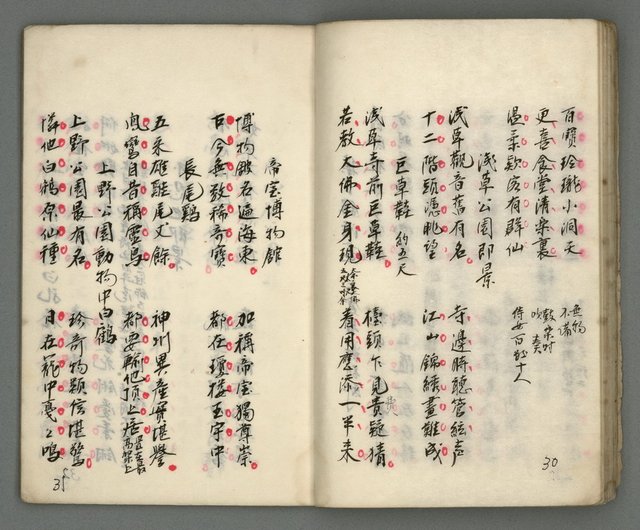 百寶玲瓏小洞天 無物不備
更喜食堂清樂裏 數樂時吹奏
溫柔款客有群仙 侍女百數十人
淺草公園即景
淺草觀音舊有名 寺邊時聽管絃声
十二階頭憑眺望 江山錦繡畫難成
巨草鞋 約五尺
淺草寺前巨草鞋 檯頭乍見費疑猜
若教大佛全身現 着用應添一半來
帝室博物館
博物駿名遍海東 加稱帝室獨尊崇
古今無數稀奇寶 都在瓊樓玉宇中
長尾鷄
五采雄雞尾丈餘 神州異產實堪譽
鳳鸞自昔稱靈鳥 都要輸他頂上
上野公園動物中白鶴
上野公園最有名 珍奇物類信堪驚
憐他白鶴原仙種 月在籠中戛々鳴
30
31